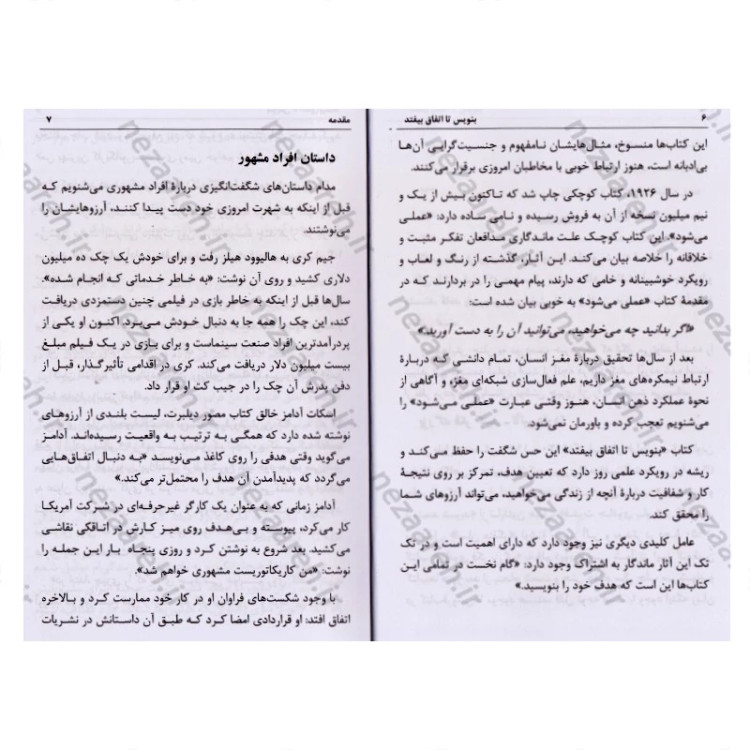 ۶ بنویس تا اتفاق بیفتد
این کتاب‌ها منسوخ، مثال‌هایشان نامفهوم و جنسیت‌گرایی آن‌ها
بی‌ادبانه است، هنوز ارتباط خوبی با مخاطبان امروزی برقرار می‌کنند.
در سال ۱۹۲۶، کتاب کوچکی چاپ شد که تاکنون بیش از یک و
نیم میلیون نسخه از آن به فروش رسیده و نامی ساده دارد: «عملی
می‌شود». این کتاب کوچک علت ماندگاری مدافعان تفکر مثبت و
خلاقانه را خلاصه بیان می‌کند. این آثار، گذشته از رنگ و لعاب و
رویکرد خوشبینانه و خامی که دارند، پیام مهمی را در بردارند که در
مقدمهٔ کتاب «عملی می‌شود» به خوبی بیان شده است:
«اگر بدانید چه می‌خواهید، می‌توانید آن را به دست آورید.»
بعد از سال‌ها تحقیق دربارهٔ مغز انسان، تمام دانشی که دربارهٔ
ارتباط نیمکره‌های مغز داریم، علم فعال‌سازی شبکه‌ای مغز، و آگاهی از
نحوهٔ عملکرد ذهن انسان، هنوز وقتی عبارت «عملی می‌شود» را
می‌شنویم تعجب کرده و باورمان نمی‌شود.
کتاب «بنویس تا اتفاق بیفتد» این حس شگفت را حفظ می‌کند و
ریشه در رویکرد علمی روز دارد که تعیین هدف، تمرکز بر روی نتیجهٔ
کار و شفافیت دربارهٔ آنچه از زندگی می‌خواهید، می‌تواند آرزوهای شما
را محقق کند.
عامل کلیدی دیگری نیز وجود دارد که دارای اهمیت است و در تک
تک این آثار ماندگار به اشتراک وجود دارد: «گام نخست در تمامی این
کتاب‌ها این است که هدف خود را بنویسید.»
مقدمه ۷
داستان افراد مشهور
مدام داستان‌های شگفت‌انگیزی دربارهٔ افراد مشهوری می‌شنویم که
قبل از اینکه به شهرت امروزی خود دست پیدا کنند، آرزوهایشان را
می‌نوشتند.
جیم کری به هالیوود هیلز رفت و برای خودش یک چک ده میلیون
دلاری کشید و روی آن نوشت: «به خاطر خدماتی که انجام شده».
سال‌ها قبل از اینکه به خاطر بازی در فیلمی چنین دستمزدی دریافت
کند، این چک را همه جا به دنبال خودش می‌برد. اکنون او یکی از
پردرآمدترین افراد صنعت سینماست و برای بازی در یک فیلم مبلغ
بیست میلیون دلار دریافت می‌کند. کری در اقدامی تأثیرگذار، قبل از
دفن پدرش آن چک را در جیب کت او قرار داد.
اسکات آدامز خالق کتاب مصور دیلبرت، لیست بلندی از آرزوهای
نوشته شده دارد که همگی به ترتیب به واقعیت رسیده‌اند. آدامز
می‌گوید وقتی هدفی را روی کاغذ می‌نویسد «به دنبال اتفاق‌هایی
می‌گردد که پدیدآمدن آن هدف را محتمل‌تر می‌کند.»
آدامز زمانی که به عنوان یک کارگر غیرحرفه‌ای در شرکت آمریکا
کار می‌کرد، پیوسته و بی‌هدف روی میز کارش در اتاقکی نقاشی
می‌کشید. بعد شروع به نوشتن کرد و روزی پنجاه بار این جمله را
نوشت: «من کاریکاتوریست مشهوری خواهم شد».
با وجود شکست‌های فراوان او در کار خود ممارست کرد و بالاخره
اتفاق افتد: او قراردادی امضا کرد که طبق آن داستانش در نشریات
nezaareh.ir